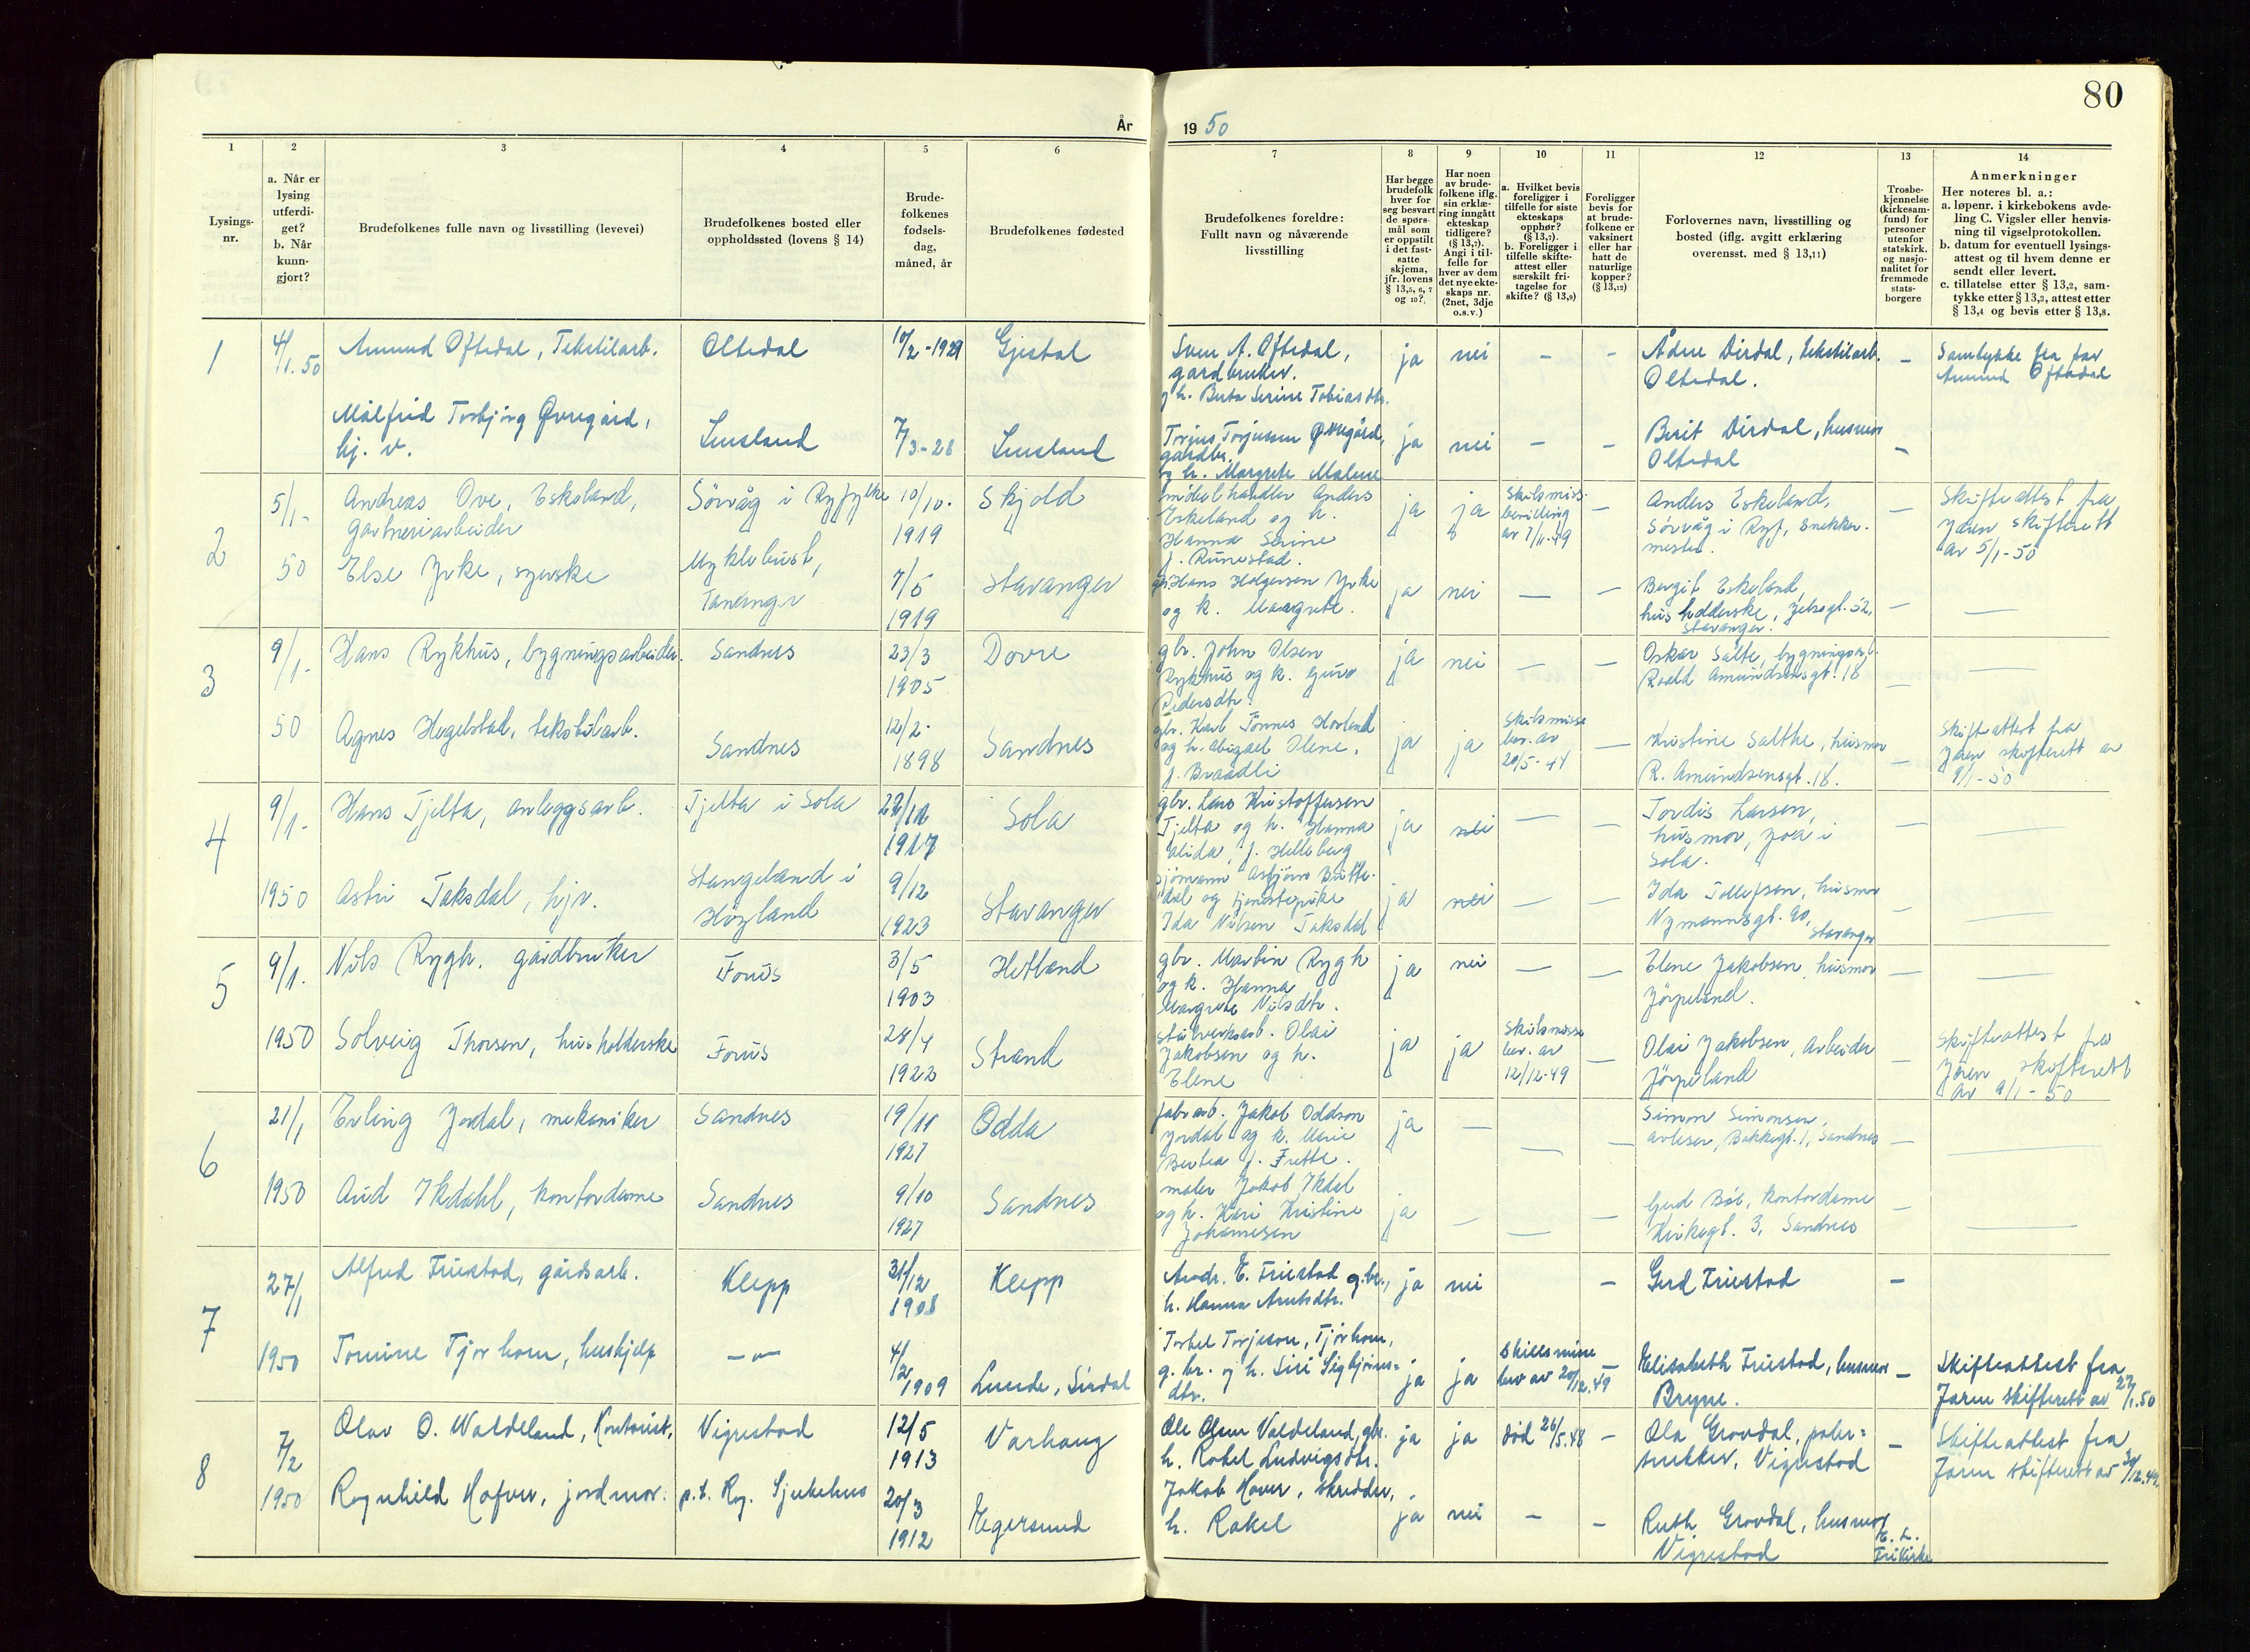 80
År
19 50
1
2
3
4
5
6
7
8
9
10
11
12
13
14
Lysings-
nr.
a. Når er
lysing
utferdi-
get?
b. Når
kunn-
gjort?
Brudefolkenes fulle navn og livsstilling (levevei)
Brudefolkenes bosted eller
oppholdssted (lovens § 14)
Brude-
folkenes
fødsels-
dag,
måned, år
Brudefolkenes fødested
Brudefolkenes foreldre:
Fullt navn og nåværende
livsstilling
Har begge
brudefolk
hver for
seg besvart
de spørs-
mål som
er oppstilt
i det fast-
satte
skjema,
jfr. lovens
§ 13,5, 6, 7
og 10?
Har noen
av brude-
folkene iflg.
sin erklæ-
ring inngått
ekteskap
tidligere?
(§ 13,7).
Angi i til-
felle for
hver av dem
det nye ekte-
skaps nr.
(2net, 3dje
o.s.v.)
a. Hvilket bevis
foreligger i
tilfelle for siste
ekteskaps
opphør?
(§ 13,7).
b. Foreligger i
tilfelle skifte-
attest eller
særskilt fri-
tagelse for
skifte? (§ 13,9)
Foreligger
bevis for
at brude-
folkene er
vaksinert
eller har
hatt de
naturlige
kopper?
(§ 13,12)
Forlovernes navn, livsstilling og
bosted (iflg. avgitt erklæring
overensst. med § 13,11)
Trosbe-
kjennelse
(kirkesam-
fund) for
personer
utenfor
statskirk.
og nasjo-
nalitet for
fremmede
stats-
borgere
Anmerkninger
Her noteres bl. a.:
a. løpenr. i kirkebokens avde-
ling C. Vigsler eller henvis-
ning til vigselprotokollen.
b. datum for eventuell lysings-
attest og til hvem denne er
sendt eller levert.
c. tillatelse etter § 13,2, sam-
tykke etter § 13,3, attest etter
§ 13,4 og bevis etter § 13,8.
1
4/1. 50
Amund Oftedal, Tekstilarb.
Oltedal
10/2 - 1929
Gjestal
Sven A. Oftedal,
gardbruker.
h. Berta Serine Tobiasdtr.
ja nei — —
Ådne Dirdal, tekstilarb.
Oltedal.
—
Samtykke fra far
Amund Oftedal
Målfrid Torbjørg Øvregård,
hj. v.
7/3-28
Torjus Torjussen Øvregård,
gardbr.
og h. Margrete Malene
ja nei — —
Berit Dirdal, husmor
Oltedal
—
2
5/1-
50
Andreas Ove, Eskeland,
gartneriarbeider
Sörvåg i Ryfylke
10/10.
1919
Skjold
möbelhandler Anders
Eskeland og h.
Hanna Serine
f. Runestad.
ja ja
Skilsmiss.
bevilling
av 7/11-49
—
Anders Eskeland,
Sörvåg i Ryf, snekker-
mester.
—
Skifteattest fra
Jæren skifterett
av 5/1-50
Else Yrke, syerske
Myklebust,
Tananger
7/5
1919
Stavanger
Hans Helgesen Yrke
og k. Margrete.
ja nei — —
Bergit Eskeland,
husholderske,
Stavanger.
— —
3
9/1-
50
Hans Rykhus, bygningsarbeider.
Sandnes
23/3
1905
Dovre
gbr. John Olsen
Rykhus og k. Guro
Pedersdtr.
ja nei — —
Oskar Salte, bygningsarb.
Roald Amundsensgt. 18
— —
Agnes Hegelstad, tekstilarb.
Sandnes
12/2.
1898
Sandnes
gbr. Karl Tönnes Hovland
og h. Abigael Olene,
f. Braadli
ja ja
Skilsmisse
bev. av
20/5-44
—
Kristine Salthe, husmor
R. Amundsensgt. 18.
—
Skifteattest fra
Jæren skifterett av
9/1-50
4
9/1-
1950
Hans Tjelta, anleggsarb.
Tjelta i Sola
1917
Sola
gbr. Lars Kristoffersen
Tjelta og h. Hanna
Alida, f. Helleberg
ja nei — —
Tordis Larsen,
husmor, Joa i
Sola.
— —
Astri Taksdal, hjv.
Stangeland i
Höyland
9/12
1923
Stavanger
sjömann Asbjörn
og tjenestepike
Ida Nilsen Taksdal
ja nei — —
Ida Tollefsen, husmor
Nymannsgt. 90,
Stavanger
— —
5
9/1.
1950
Nils Rygh. gårdbruker
Forus
3/5
1903
Hetland
gbr. Martin Rygh
og k. Hanna
Margrete Nilsdtr.
ja nei — —
Elene Jakobsen, husmor
Jörpeland.
— —
Solveig Thorsen, husholderske
Forus
28/4
1922
Strand
stålverksarb. Olai
Jakobsen og h.
Elene
ja ja
Skilsmisse
bev. av
12/12-49
—
Olai Jakobsen, Arbeider
Jörpeland
—
Skifteattest fra
Jæren skifterett
av 9/1-50
6
21/1
1950
Erling Jordal, mekaniker
Sandnes
19/11
1927
Odda
fabr.arb. Jakob Oddson
Jordal og k. Marie
Bertea f. Frette.
ja — — —
Simon Simonsen,
avleser, Bakkegt. 1, Sandnes
— —
Aud Ikdahl, kontordame
Sandnes
9/10
1927
Sandnes
maler Jakob Ikdal
og h. Kari Kristine
Johannesen
ja — — —
Gerd Bøe, kontordame
Kirkegt. 3, Sandnes
— —
7
27/1
1950
Alfred Friestad, gårdsarb.
Klepp
31/12
1908
Klepp
Andr. E. Friestad g.br.,
h. Hanna Arntsdtr.
ja nei —
Gerd Friestad
—
Tomine Tjørhom, hushjelp
—"—
4/2
1909
Lunde, Sirdal
Torkel Torjeson, Tjörhom,
g. br. og h. Siri Sigbjörns-
dtr.
ja ja
skilsmisse
bev av 20/12.49
—
Elisabeth Friestad, husmor
Bryne.
—
Skifteattest fra
Jæren skifterett av 27/1.50
8
7/2
1950
Olav O. Waldeland, Kontorist,
Vigrestad
12/5
1913
Varhaug
Ole Olsen Valdeland, gbr.
h. Rakel Ludvigsdtr.
ja ja
död 26/5.48
—
Ola Grovdal, poler-
snekker, Vigrestad
—
Skifteattest fra
Jæren skifterett av
Ragnhild Hafver, jordmor.
p.t. Rog. Sjukehus
20/3
1912
Egersund
Jakob Haver, skredder,
h. Rakel
ja nei — —
Ruth Grovdal, husmor
Vigrestad
E. L.
Frikirke